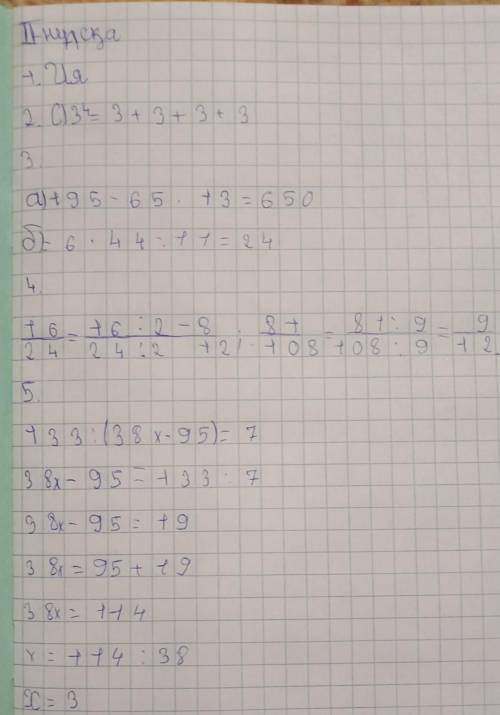 II-нұсқа
1. Ия
2. С) 3⁴ = 3 + 3 + 3 + 3
3.
а) 195 - 65 · 13 = 650
б) 6 · 44 : 11 = 24
4.
16/24 = 16 : 2 - 8 / 24 : 2 12 ; 81/108 = 81 : 9 / 108 : 9 = 9/12
5.
133 : (38x - 95) = 7
38x - 95 = 133 : 7
38x - 95 = 19
38x = 95 + 19
38x = 114
x = 114 : 38
x = 3